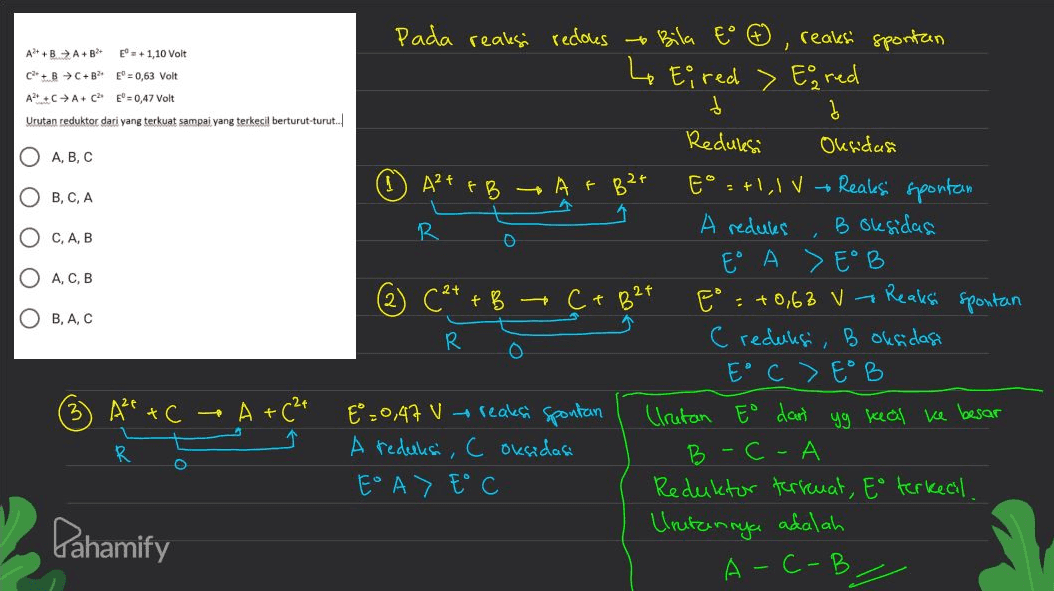 A²⁺ + B → A + B²⁺ E⁰ = + 1,10 Volt
C²⁺ + B → C + B²⁺ E⁰ = 0,63 Volt
A²⁺ + C → A + C²⁺ E⁰ = 0,47 Volt
Urutan reduktor dari yang terkuat sampai yang terkecil berturut-turut..
A, B, C
B, C, A
C, A, B
A, C, B
B, A, C
Pada reaksi redoks → Bila E° ⊕, reaksi spontan
↳ E°₁ red > E°₂ red
↓ ↓
Reduksi Oksidasi
① A²⁺ + B → A + B²⁺ E° = +1,1 V → Reaksi spontan
R O
A reduksi, B oksidasi
E° A > E° B
② C²⁺ + B → C + B²⁺ E° = +0,63 V → Reaksi spontan
R O
C reduksi, B oksidasi
E° C > E° B
③ A²⁺ + C → A + C²⁺ E° = 0,47 V → reaksi spontan
R O
A reduksi, C oksidasi
E° A > E° C
Urutan E° dari yg kecil ke besar
B - C - A
Reduktor terkuat, E° terkecil.
Urutannya adalah
A - C - B
Pahamify